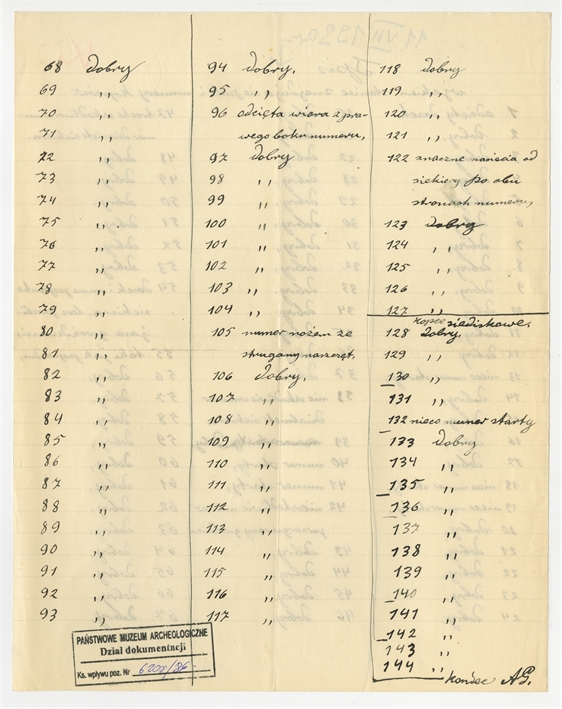 68 dobry
69 ,,
70 ,,
71 ,,
72 ,,
73 ,,
74 ,,
75 ,,
76 ,,
77 ,,
78 ,,
79 ,,
80 ,,
81 ,,
82 ,,
83 ,,
84 ,,
85 ,,
86 ,,
87 ,,
88 ,,
89 ,,
90 ,,
91 ,,
92 ,,
93 ,,
94 dobry,
95 ,,
96 odcięta wióra z pra-
wego boku numeru,
97 dobry
98 ,,
99 ,,
100 ,,
101 ,,
102 ,,
103 ,,
104 ,,
105 numer nożem ze
strugany naszczęt.
106 dobry.
107 ,,
108 ,,
109 ,,
110 ,,
111 ,,
112 ,,
113 ,,
114 ,,
115 ,,
116 ,,
117 ,,
118 dobry
119 ,,
120 ,,
121 ,,
122 znaczne nacięcia od
siekiery po obu
stronach numeru,
123 dobry
124 ,,
125 ,,
126 ,,
127 ,,
kopce siedliskowe.
128 dobry,
129 ,,
130 ,,
131 ,,
132 nieco numer starty
133 dobry
134 ,,
135 ,,
136 ,,
137 ,,
138 ,,
139 ,,
140 ,,
141 ,,
142 ,,
143 ,,
144 ,,
koniec AG.
PAŃSTWOWE MUZEUM ARCHEOLOGICZNE
Dział dokumentacji
Ks. wpływu poz. Nr